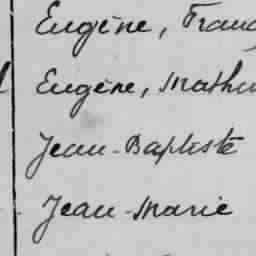 Eugène, Franç
Eugène, Mathu
Jean-Baptiste
Jean-Marie